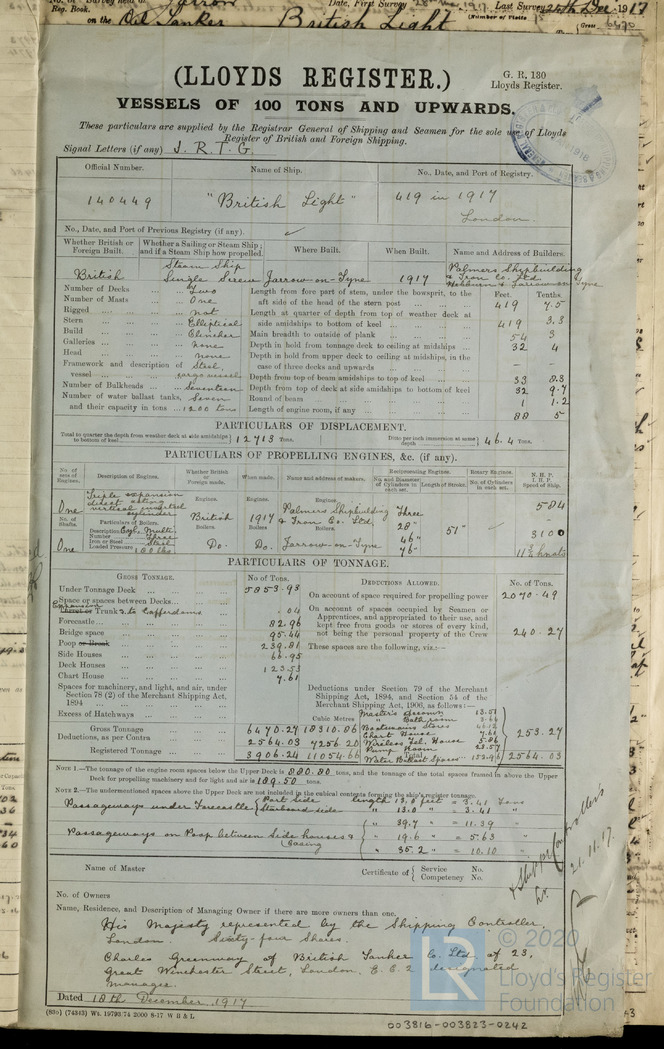 Reg. Book.
Date, First Survey
Last Survey 24th Dec 1917
on the Oil Tanker British Light
(Number of Visits
Tons 6470
(LLOYDS REGISTER.)
G. R. 130
Lloyds Register.
VESSELS OF 100 TONS AND UPWARDS.
These particulars are supplied by the Registrar General of Shipping and Seamen for the sole use of Lloyds
Register of British and Foreign Shipping.
Signal Letters (if any) J. R. T. G.
Official Number. Name of Ship. No., Date, and Port of Registry.
140449 "British Light" 419 in 1917
London
No., Date, and Port of Previous Registry (if any).
Whether British or Foreign Built. Whether a Sailing or Steam Ship; and if a Steam Ship how propelled. Where Built. When Built. Name and Address of Builders.
British Steam Ship Single Screw Jarrow-on-Tyne 1917 Palmers Shipbuilding & Iron Co. Ltd. Hebburn & Jarrow-on-Tyne
Number of Decks Two
Number of Masts One
Rigged not
Stern Elliptical
Build Clincher
Galleries none
Head none
Framework and description of vessel Steel, cargo vessel
Number of Bulkheads Seventeen
Number of water ballast tanks, Seven
and their capacity in tons 1200 tons
Feet. Tenths
Length from fore part of stem, under the bowsprit, to the
aft side of the head of the stern post 419 7.5
Length at quarter of depth from top of weather deck at
side amidships to bottom of keel 419 3.3
Main breadth to outside of plank 54 3
Depth in hold from tonnage deck to ceiling at midships 32 4
Depth in hold from upper deck to ceiling at midships, in the
case of three decks and upwards – –
Depth from top of beam amidships to top of keel 33 8.3
Depth from top of deck at side amidships to bottom of keel 32 9.7
Round of beam 1 1.2
Length of engine room, if any 88 5
PARTICULARS OF DISPLACEMENT.
Total to quarter the depth from weather deck at side amidships to bottom of keel 12713 Tons.
Ditto per inch immersion at same depth 46.4 Tons.
PARTICULARS OF PROPELLING ENGINES, &c. (if any).
No. of sets of Engines. Description of Engines. Whether British or Foreign made. When made. Name and address of makers. Reciprocating Engines. Rotary Engines. N. H. P. I. H. P. Speed of Ship.
No. and Diameter of Cylinders in each set. Length of Stroke. No. of Cylinders in each set.
One Triple expansion direct acting vertical inverted cylinder
Engines. British Engines. 1917 Engines. Palmers Shipbuilding & Iron Co. Ltd. Three 28" 46" 76" 51" 584
No. of Shafts. Particulars of Boilers.
One Description Cyl. Multi.
Number Three
Iron or Steel Steel
Loaded Pressure 180 lbs
Boilers Do. Boilers Do. Boilers Jarrow-on-Tyne 3100
11½ knots
PARTICULARS OF TONNAGE.
GROSS TONNAGE. No. of Tons. DEDUCTIONS ALLOWED. No. of Tons.
Under Tonnage Deck 5853.93
Space or spaces between Decks
Expansion Trunk & to Cofferdams .04
Forecastle 82.96
Bridge space 95.44
Poop or Break 239.81
Side Houses 66.95
Deck Houses 123.53
Chart House 7.61
Spaces for machinery, and light, and air, under
Section 78 (2) of the Merchant Shipping Act,
1894
Excess of Hatchways
Cubic Metres
Gross Tonnage 6470.27 18310.86
Deductions, as per Contra 2564.03 7256.20
Registered Tonnage 3906.24 11054.66
On account of space required for propelling power 2070.49
On account of spaces occupied by Seamen or
Apprentices, and appropriated to their use, and
kept free from goods or stores of every kind,
not being the personal property of the Crew 240.27
These spaces are the following, viz.:—
Deductions under Section 79 of the Merchant
Shipping Act, 1894, and Section 54 of the
Merchant Shipping Act, 1906, as follows:—
Master's Accomn 13.51
" Bath room 3.66
Boatswains Stores
Chart House 7.61
Wireless Tel. House
Pump Room 23.57
Water Ballast Spaces
253.27
Total 2564.03
NOTE 1.—The tonnage of the engine room spaces below the Upper Deck is 880.80 tons, and the tonnage of the total spaces framed in above the Upper
Deck for propelling machinery and for light and air is 189.50 tons.
NOTE 2.—The undermentioned spaces above the Upper Deck are not included in the cubical contents forming the ship's register tonnage.
Passageways under Forecastle { Port Side length 13.0 feet = 3.41 Tons
Starboard side " 13.0 " = 3.41 "
" 39.7 " = 11.39 "
Passageways on Poop between Side houses & Casing { " 19.6 " = 5.63 "
" 35.2 " = 10.10 "
21.11.17.
Name of Master Certificate of { Service No.
Competency No.
No. of Owners
Name, Residence, and Description of Managing Owner if there are more owners than one.
His Majesty represented by the Shipping Controller,
London. Sixty-four Shares.
Charles Greenway of British Tanker Co. Ltd. of 23,
Great Winchester Street, London. E.C.2 designated
manager.
Dated 18th December 1917
(830) (74343) Wt. 19793/74 2000 8-17 W B & L
003816-003823-0242
© 2020
Lloyd's Register
Foundation
LR